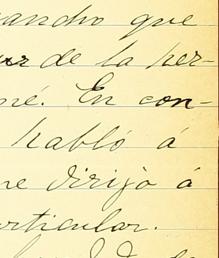 ancho que
de la her-
mé. En con-
habló á
me dirijò á
articular.